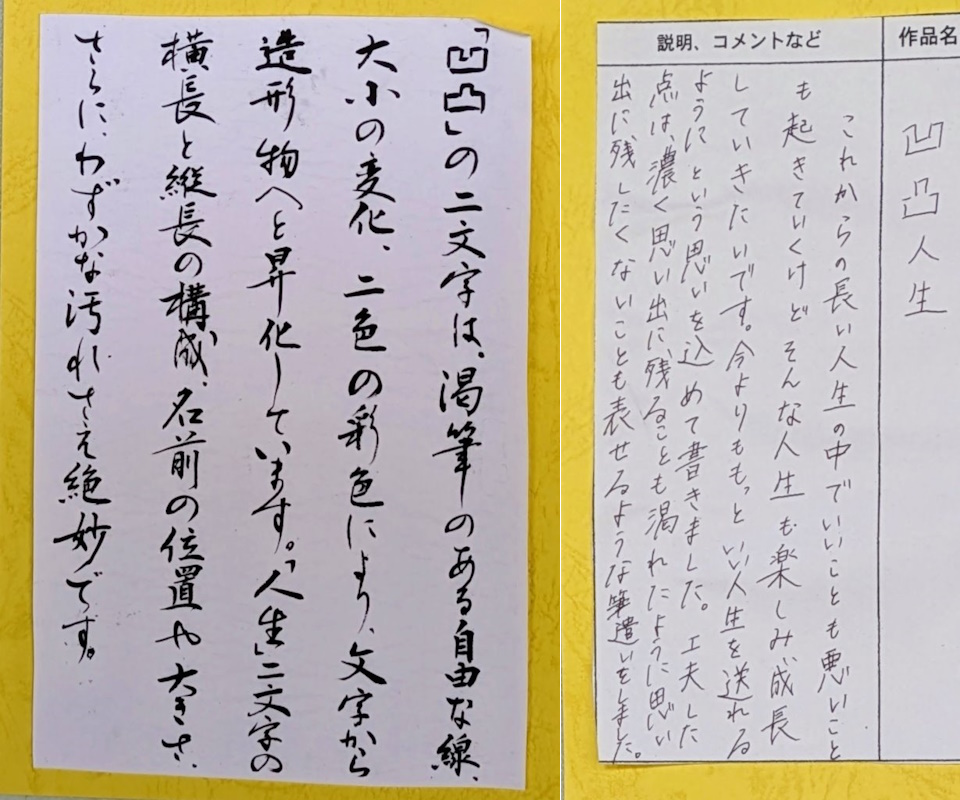 「凹凸」の二文字は、渇筆のある自由な線、
大小の変化、二色の彩色により、文字から
造形物へと昇化しています。「人生」二文字の
横長と縦長の構成、名前の位置や大きさ、
さらに、わずかな汚れさえ絶妙です。
作品名
凹凸人生
説明、コメントなど
これからの長い人生の中でいいことも悪いこと
も起きていくけどそんな人生も楽しみ、成長
していきたいです。今よりももっといい人生を送れる
ようにという思いを込めて書きました。工夫した
点は、濃く思い出に残ることも渇れたように思い
出に残したくないことも表せるような筆遣いをしました。